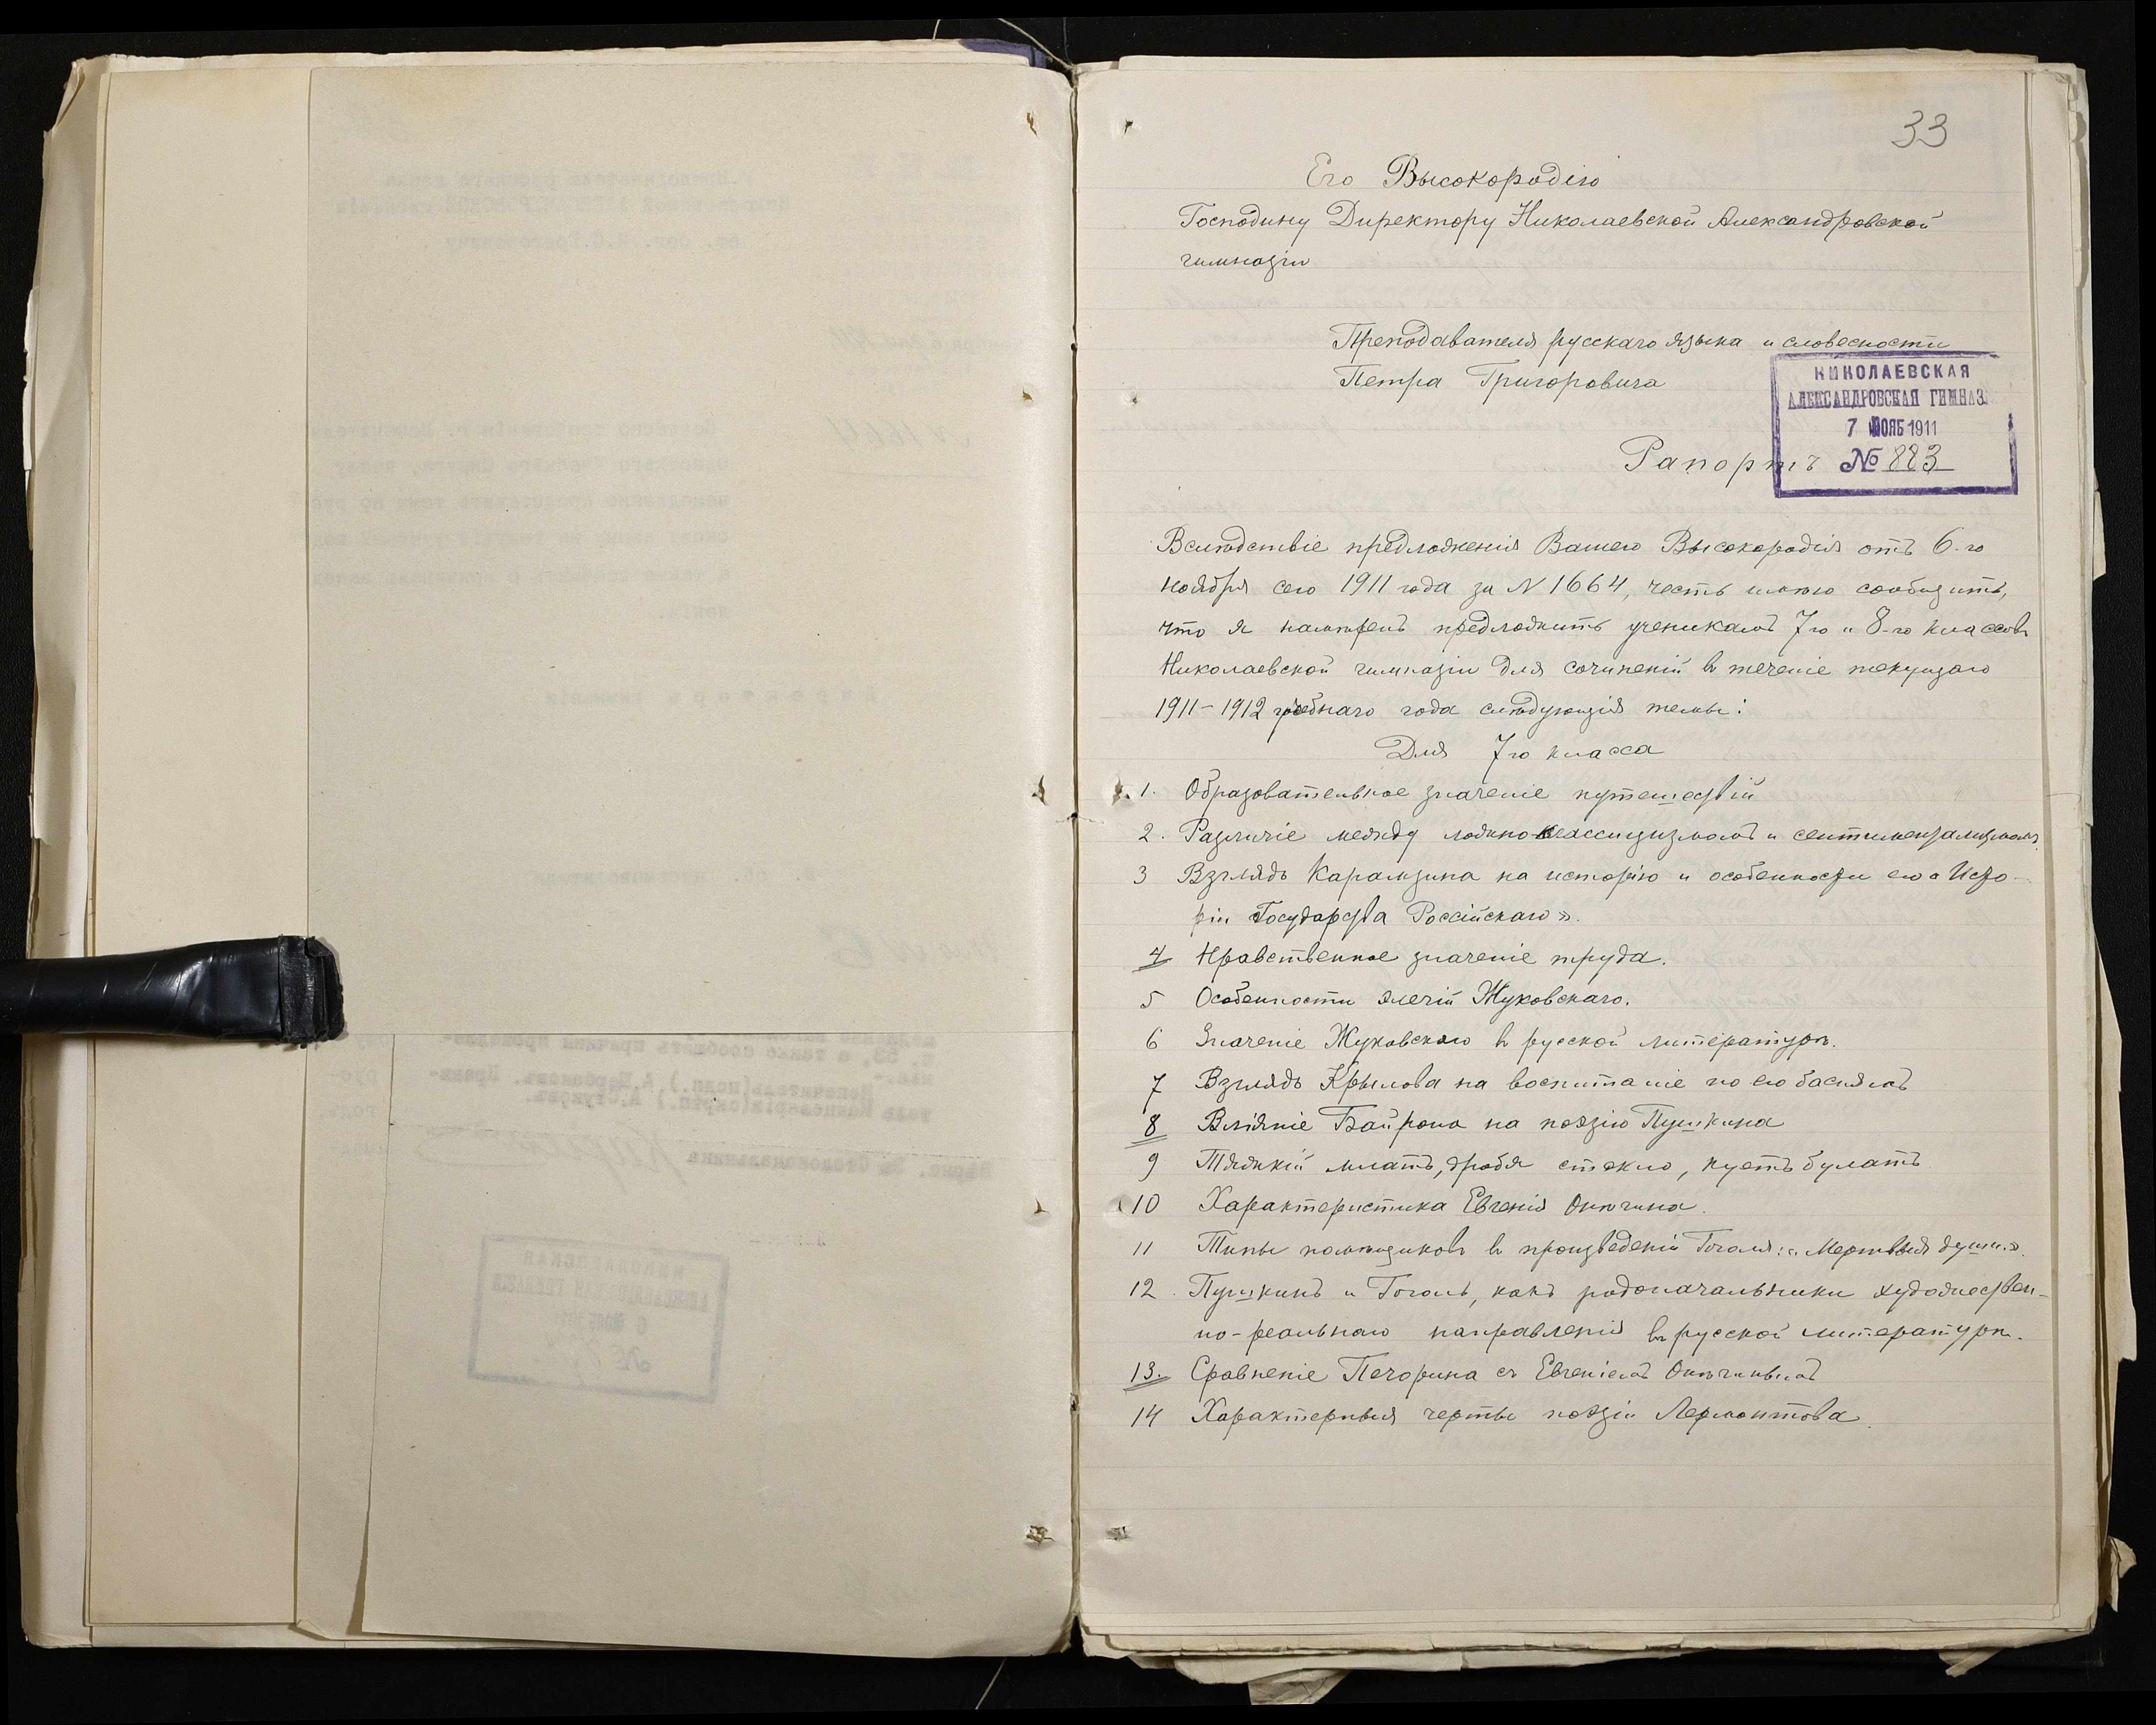 33
Его Высокородію
Господину Директору Николаевской Александровской
гимназіи
Преподавателя русскаго языка и словесности
Петра Григоровича
НИКОЛАЕВСКАЯ
АЛЕКСАНДРОВСКАЯ ГИМНАЗ
7 НОЯБ 1911
№ 883
Рапортъ
Вслѣдствіе предложенія Вашего Высокородія отъ 6-го
ноября сего 1911 года за № 1664, честь имѣю сообщить,
что я намѣренъ предложить ученикамъ 7го и 8-го классовъ
Николаевской гимназіи для сочиненій въ теченіе текущаго
1911-1912 учебнаго года слѣдующія темы:
Для 7го класса
1. Образовательное значеніе путешествій
2. Различіе между ложно-классицизмомъ и сентиментализмомъ.
3 Взглядъ Карамзина на исторію и особенности его «Исто-
ріи Государства Россійскаго».
4 Нравственное значеніе труда.
5 Особенности элегій Жуковскаго.
6 Значеніе Жуковскаго въ русской литературѣ.
7 Взглядъ Крылова на воспитаніе по его баснямъ
8 Вліяніе Байрона на поэзію Пушкина
9 Тяжкій млатъ, дробя стекло, куетъ булатъ
10 Характеристика Евгенія Онѣгина.
11 Типы помѣщиковъ въ произведеніи Гоголя: «Мертвыя души».
12. Пушкинъ и Гоголь, какъ родоначальники художествен-
но-реальнаго направленія въ русской литературѣ.
13. Сравненіе Печорина съ Евгеніемъ Онѣгинымъ
14 Характерныя черты поэзіи Лермонтова.